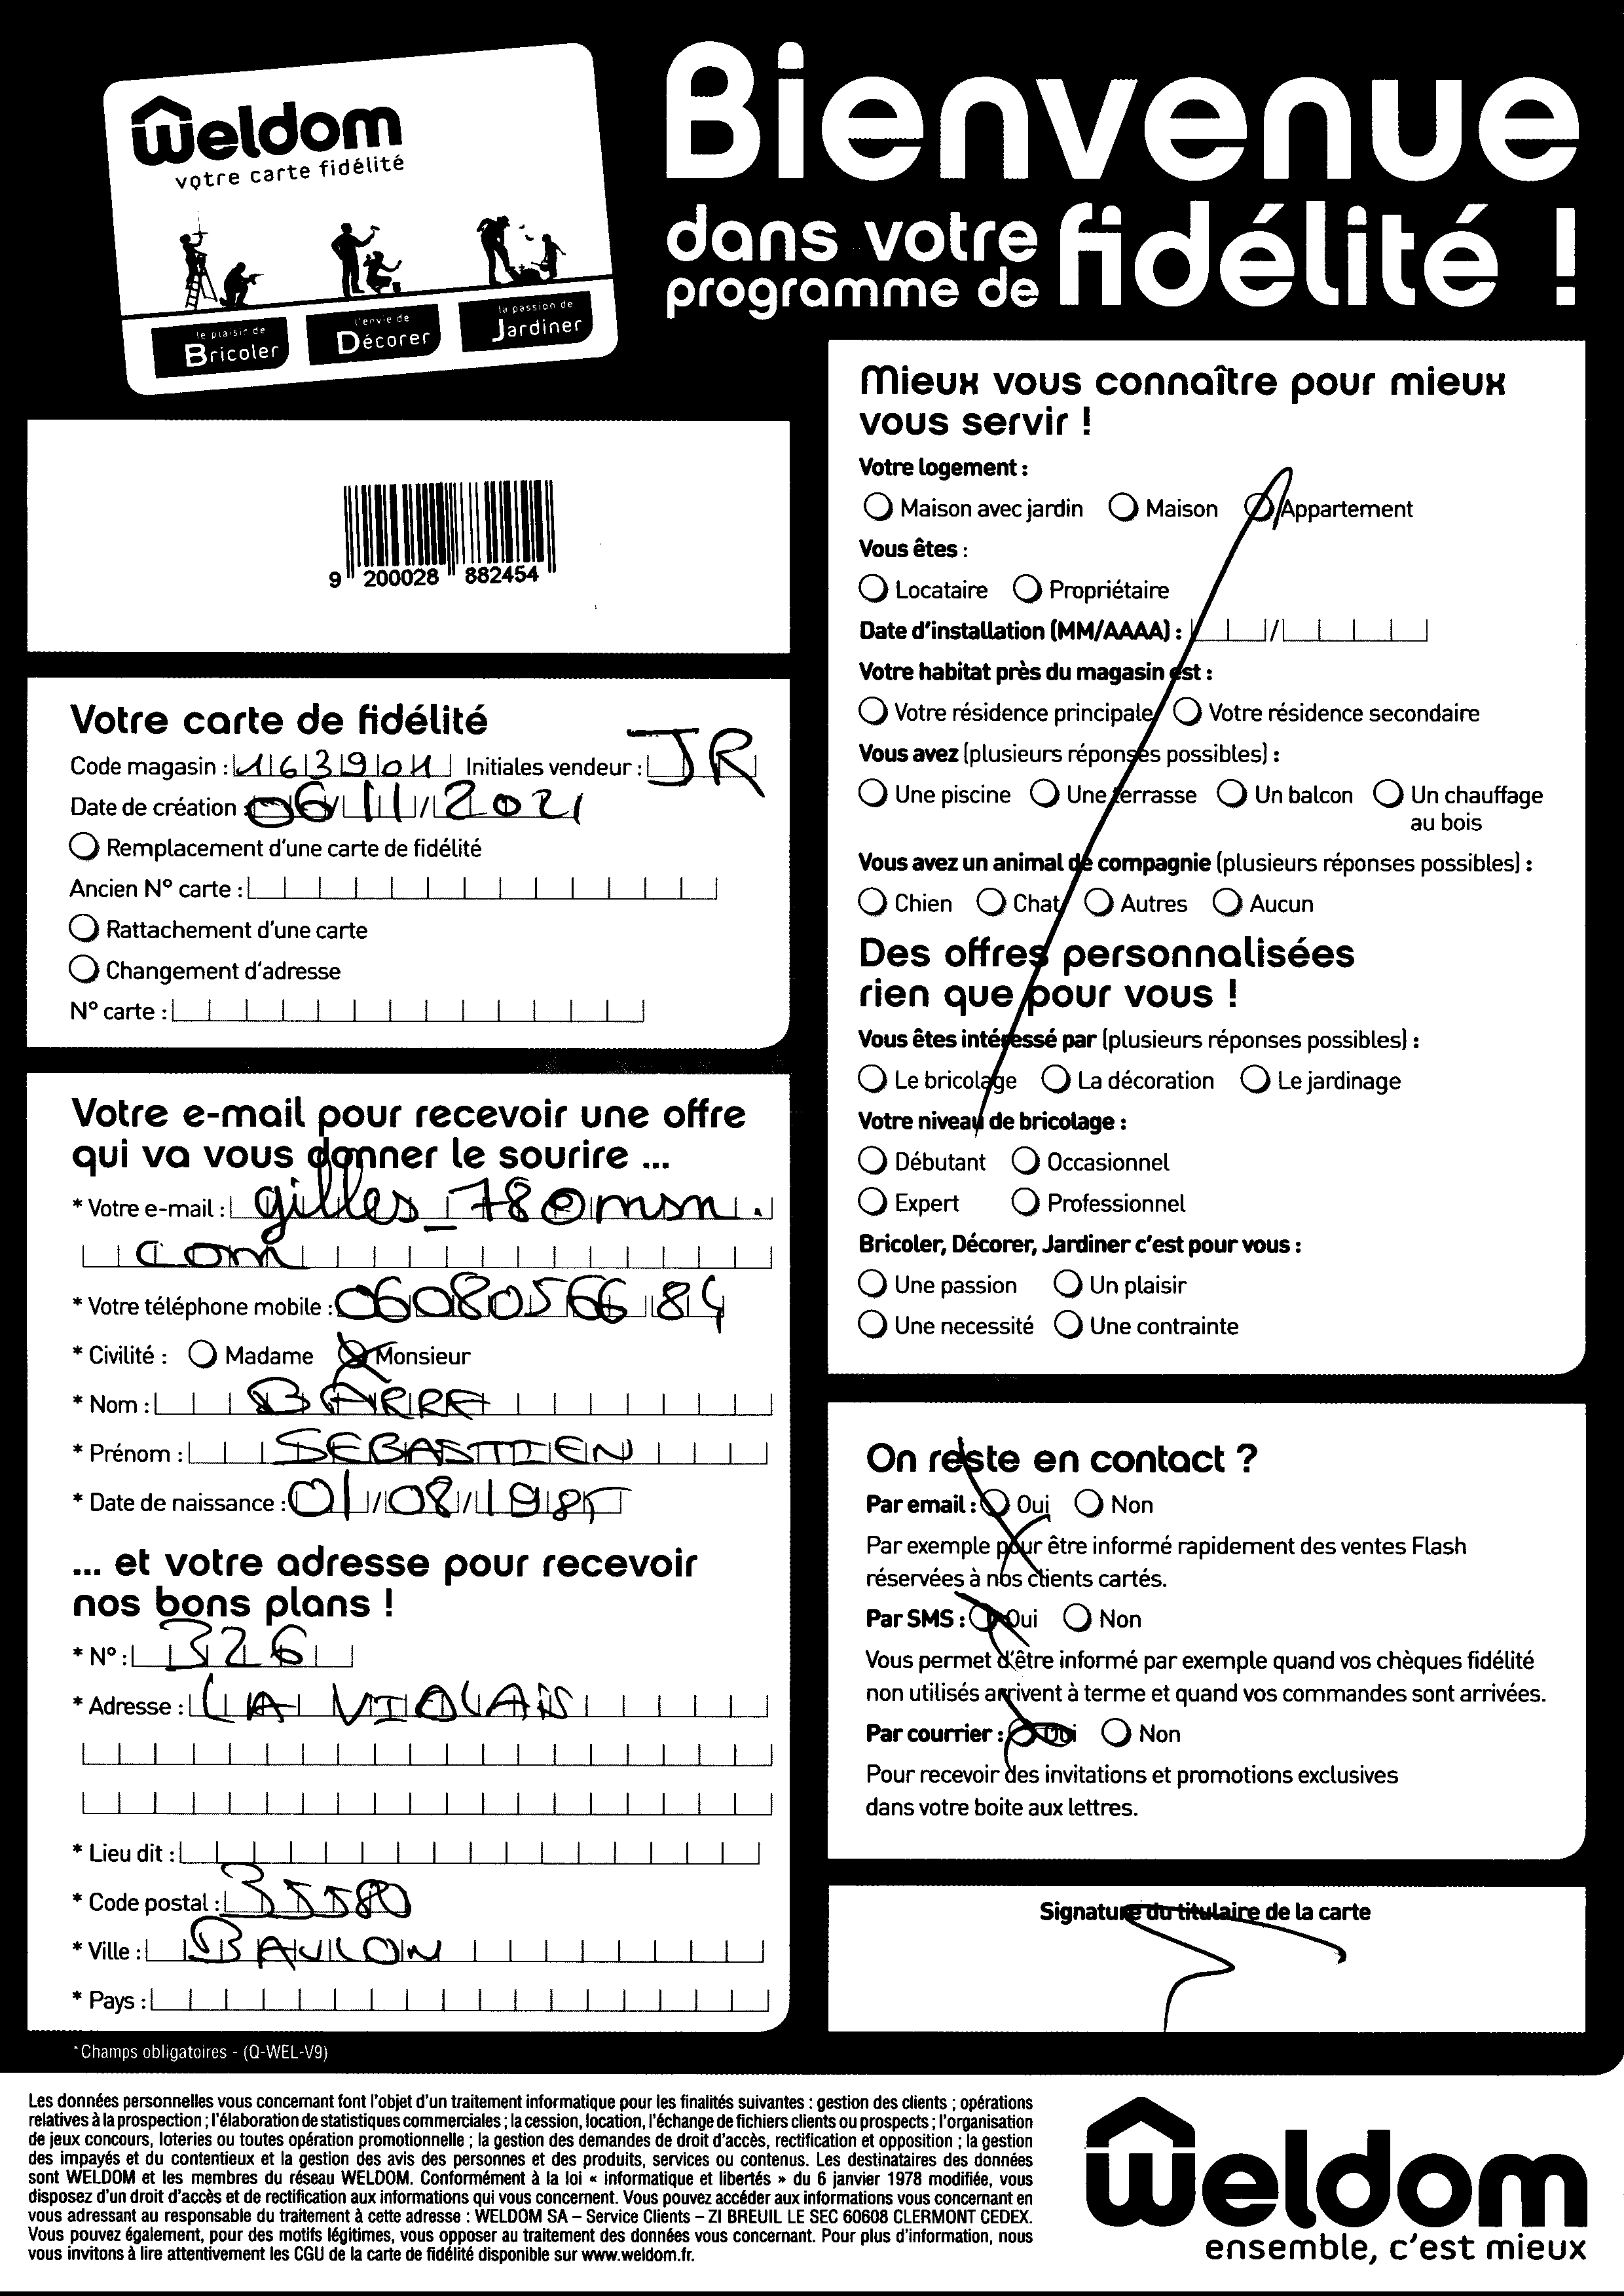 Weldom
votre carte fidélité
le plaisir de
Bricoler
l'envie de
Décorer
la passion de
Jardiner
Bienvenue
dans votre
programme de fidélité !
9 200028 882454
Votre carte de fidélité
Code magasin : 163904 Initiales vendeur : JR
Date de création : 06/11/2021
Remplacement d'une carte de fidélité
Ancien N° carte :
Rattachement d'une carte
Changement d'adresse
N° carte :
Votre e-mail pour recevoir une offre
qui va vous donner le sourire ...
* Votre e-mail : gilles_78@msn.
com
* Votre téléphone mobile : 0608056684
* Civilité : Madame Monsieur
* Nom : BARRE
* Prénom : SEBASTIEN
* Date de naissance : 01/08/1985
... et votre adresse pour recevoir
nos bons plans !
* N° : 326
* Adresse : LA VIOLAIS
* Lieu dit :
* Code postal : 35580
* Ville : BAULON
* Pays :
*Champs obligatoires - (Q-WEL-V9)
Mieux vous connaître pour mieux
vous servir !
Votre logement :
Maison avec jardin Maison Appartement
Vous êtes :
Locataire Propriétaire
Date d'installation (MM/AAAA) : /
Votre habitat près du magasin est :
Votre résidence principale Votre résidence secondaire
Vous avez (plusieurs réponses possibles) :
Une piscine Une terrasse Un balcon Un chauffage
au bois
Vous avez un animal de compagnie (plusieurs réponses possibles) :
Chien Chat Autres Aucun
Des offres personnalisées
rien que pour vous !
Vous êtes intéressé par (plusieurs réponses possibles) :
Le bricolage La décoration Le jardinage
Votre niveau de bricolage :
Débutant Occasionnel
Expert Professionnel
Bricoler, Décorer, Jardiner c'est pour vous :
Une passion Un plaisir
Une necessité Une contrainte
On reste en contact ?
Par email : Oui Non
Par exemple pour être informé rapidement des ventes Flash
réservées à nos clients cartés.
Par SMS : Oui Non
Vous permet d'être informé par exemple quand vos chèques fidélité
non utilisés arrivent à terme et quand vos commandes sont arrivées.
Par courrier : Oui Non
Pour recevoir des invitations et promotions exclusives
dans votre boite aux lettres.
Signature du titulaire de la carte
Les données personnelles vous concernant font l'objet d'un traitement informatique pour les finalités suivantes : gestion des clients ; opérations
relatives à la prospection ; l'élaboration de statistiques commerciales ; la cession, location, l'échange de fichiers clients ou prospects ; l'organisation
de jeux concours, loteries ou toutes opération promotionnelle ; la gestion des demandes de droit d'accès, rectification et opposition ; la gestion
des impayés et du contentieux et la gestion des avis des personnes et des produits, services ou contenus. Les destinataires des données
sont WELDOM et les membres du réseau WELDOM. Conformément à la loi « informatique et libertés » du 6 janvier 1978 modifiée, vous
disposez d'un droit d'accès et de rectification aux informations qui vous concernent. Vous pouvez accéder aux informations vous concernant en
vous adressant au responsable du traitement à cette adresse : WELDOM SA – Service Clients – ZI BREUIL LE SEC 60608 CLERMONT CEDEX.
Vous pouvez également, pour des motifs légitimes, vous opposer au traitement des données vous concernant. Pour plus d'information, nous
vous invitons à lire attentivement les CGU de la carte de fidélité disponible sur www.weldom.fr.
Weldom
ensemble, c'est mieux